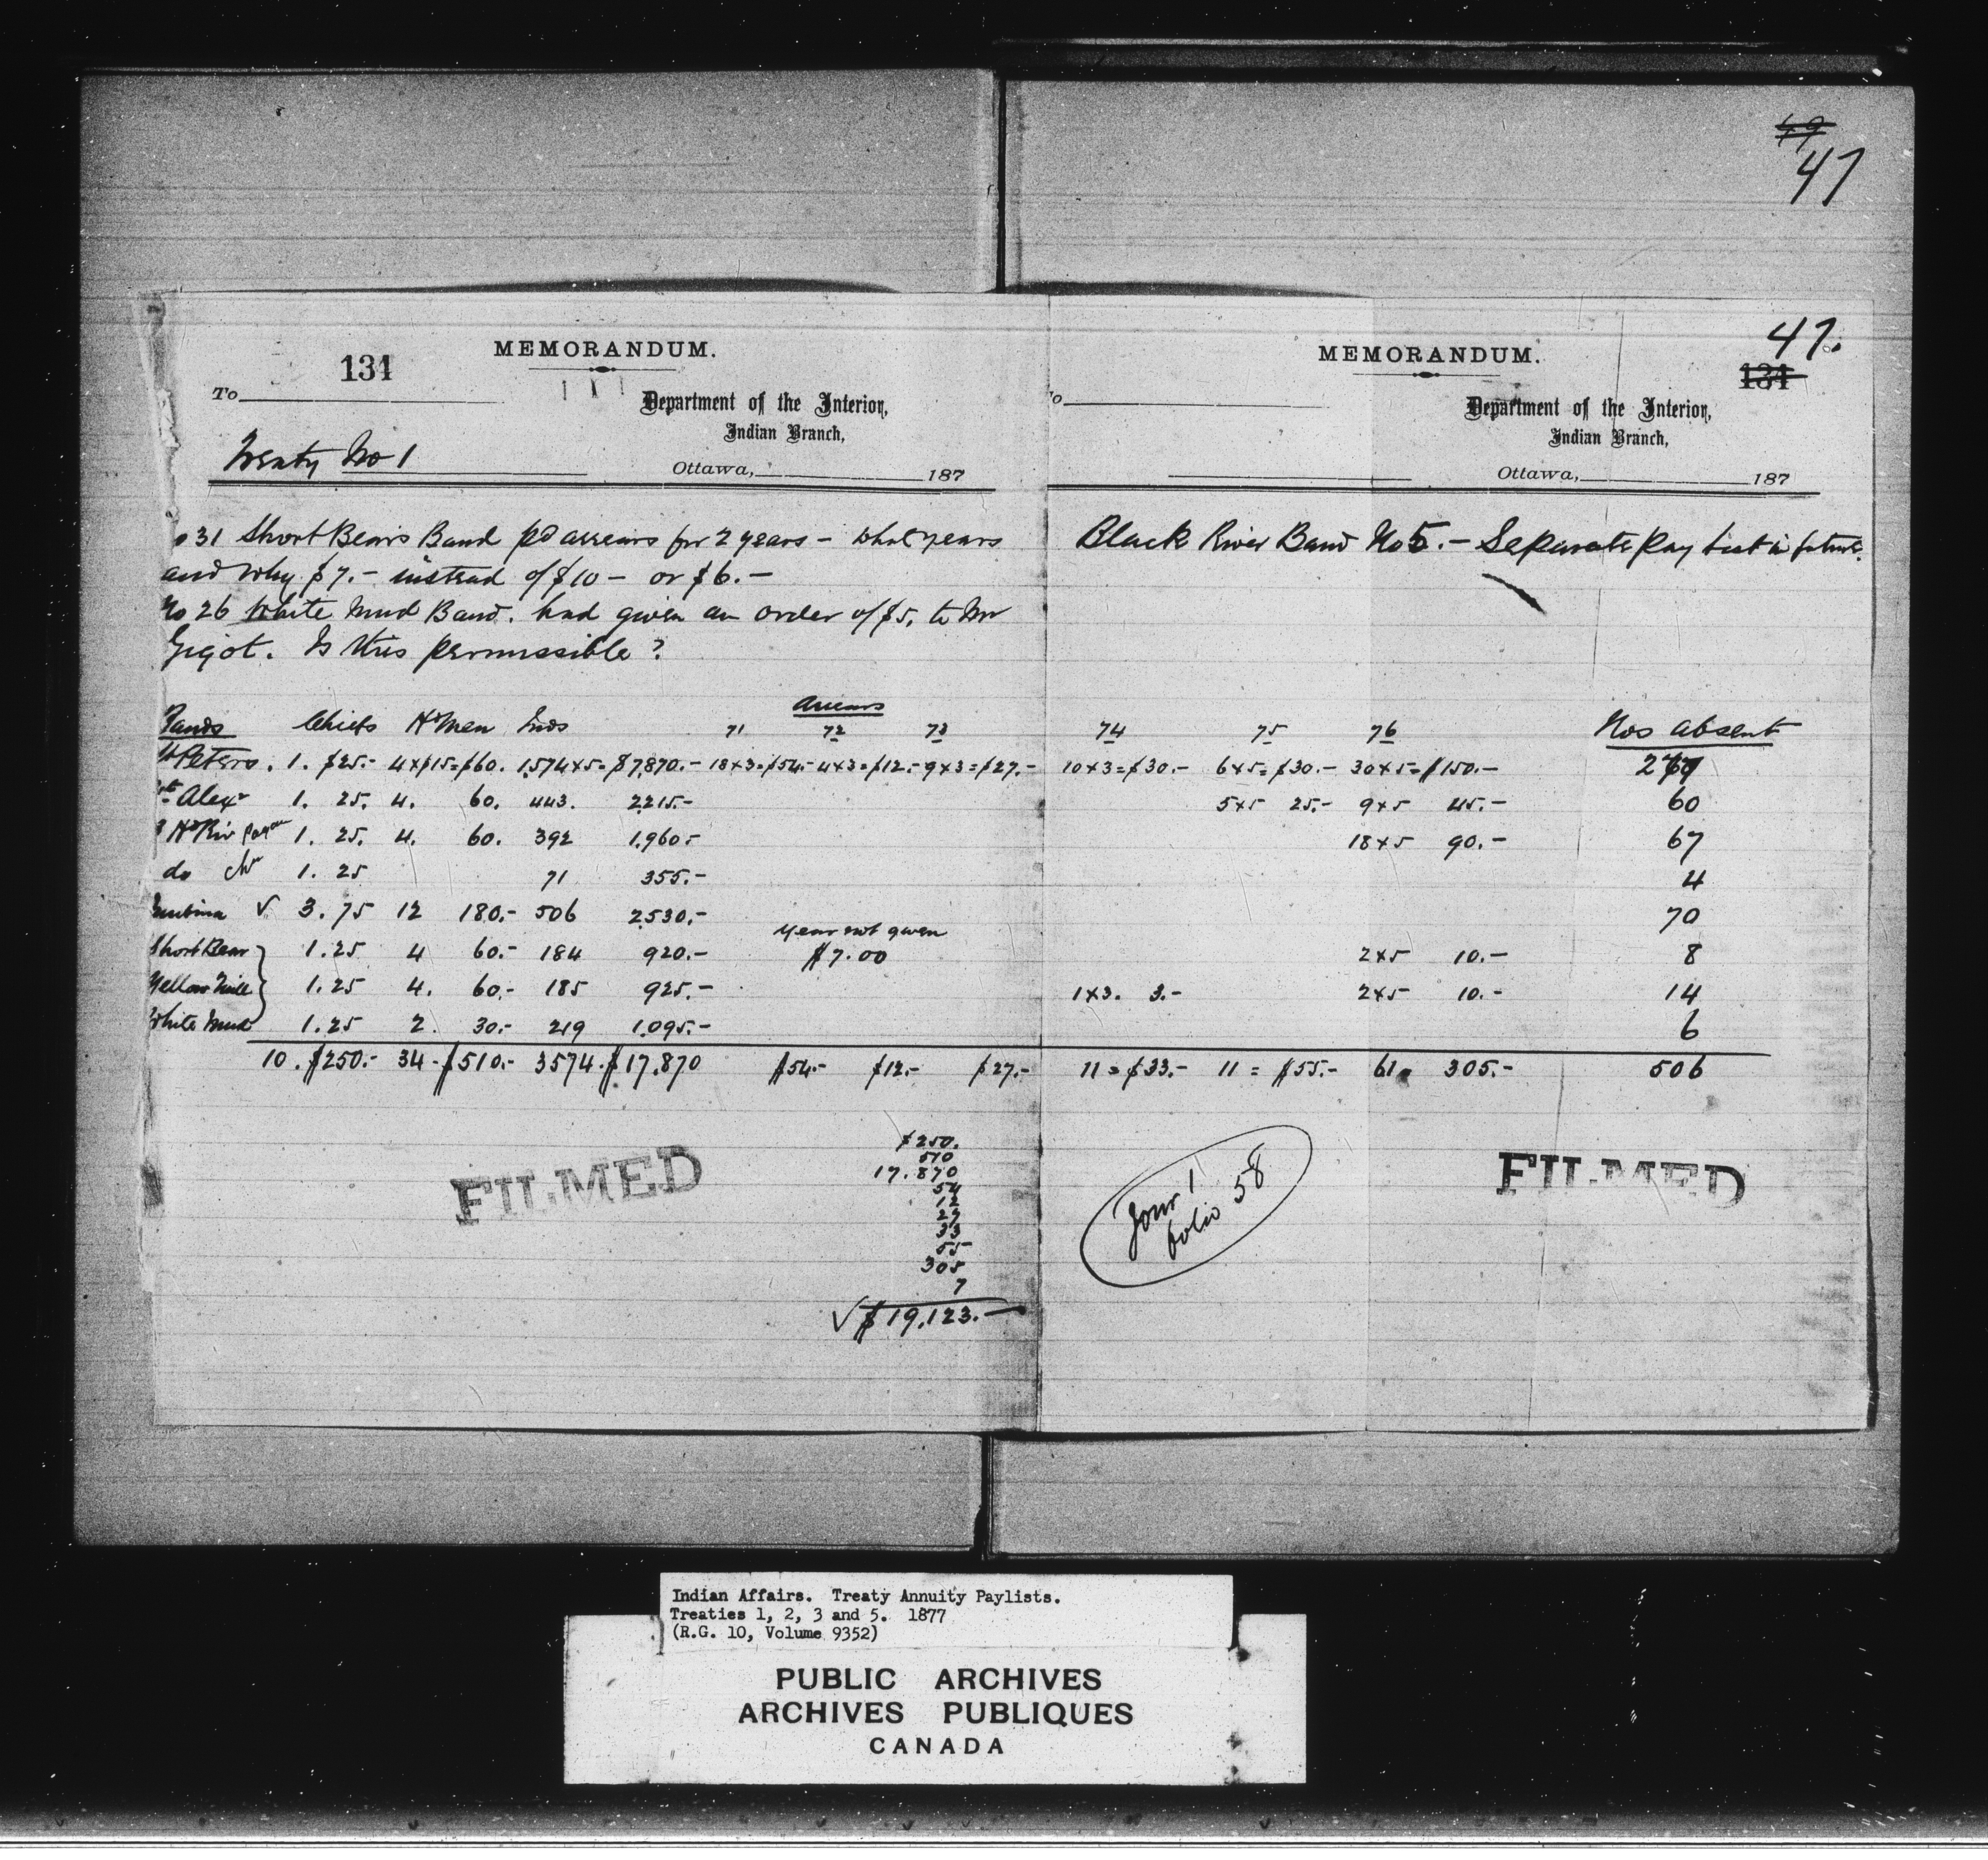 49
47
131
MEMORANDUM.
To
Department of the Interior,
Indian Branch,
Treaty No 1
Ottawa, 187
o 31 Short Bears Band pd arrears for 2 years – what years
and why $7.– instead of $10 – or $6.–
No 26 White Mud Band. had given an order of $5, to Mr
Gigot. Is this permissible?
Bands Chiefs Hd Men Inds Arrears 71 72 73
St Peters. 1. $25.– 4x$15=$60. 1,574x5=$7,870.– 18x3=$54.– 4x3=$12.– 9x3=$27.–
Ft Alexr 1. 25. 4. 60. 443. 2,215.–
Riv 1. 25. 4. 60. 392 1,960.–
do 1. 25 71 355.–
√ 3. 75 12 180.– 506 2,530.–
Short Bear 1. 25 4 60.– 184 920.– year not given $7.00
Yellow Quill 1. 25 4. 60.– 185 925.–
White Mud 1. 25 2. 30.– 219 1,095.–
10. $250.– 34 – $510.– 3574. $17,870 $54.– $12.– $27.–
$250.
510
17.870
54
12
27
33
55
305
7
√ $19,123.–
FILMED
47.
131
MEMORANDUM.
o
Department of the Interior,
Indian Branch,
Ottawa, 187
Black River Band No 5. – Separate Pay List in future.
74 75 76 Nos absent
10x3=$30.– 6x5=$30.– 30x5=$150.– 277
5x5 25.– 9x5 45.– 60
18x5 90.– 67
4
70
2x5 10.– 8
1x3. 3.– 2x5 10.– 14
6
11=$33.– 11 = $55.– 61 305.– 506
Jour 1
folio 58
FILMED
Indian Affairs. Treaty Annuity Paylists.
Treaties 1, 2, 3 and 5. 1877
(R.G. 10, Volume 9352)
PUBLIC ARCHIVES
ARCHIVES PUBLIQUES
CANADA